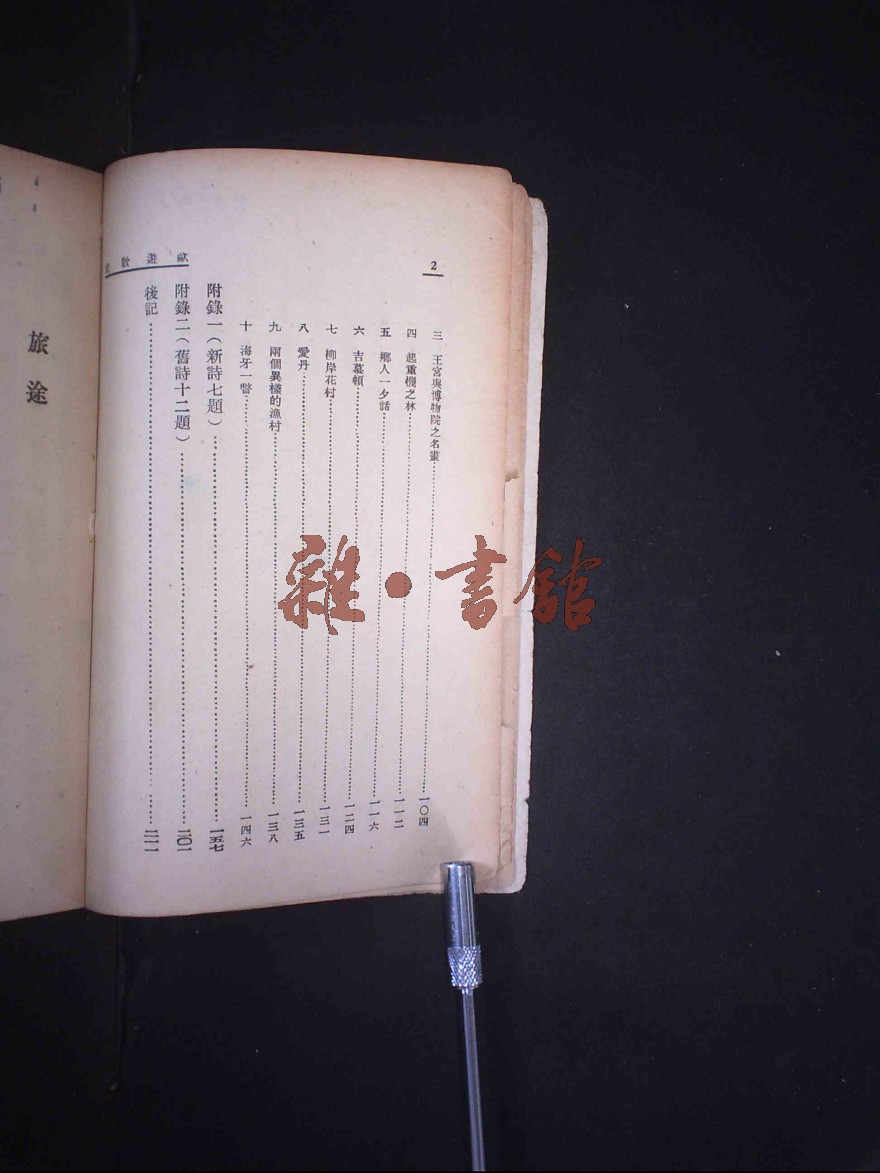 2
歐遊散
三　王宮與博物院之名畫……一〇四
四　起重機之林……一一二
五　鄉人一夕話……一一六
六　吉慕頓……一二四
七　柳岸花村……一三一
八　愛丹……一三五
九　兩個異樣的漁村……一三八
十　海牙一瞥……一四六
附錄一（新詩七題）……一五七
附錄二（舊詩十二題）……二〇一
後記……二一一
旅途
雜·書館